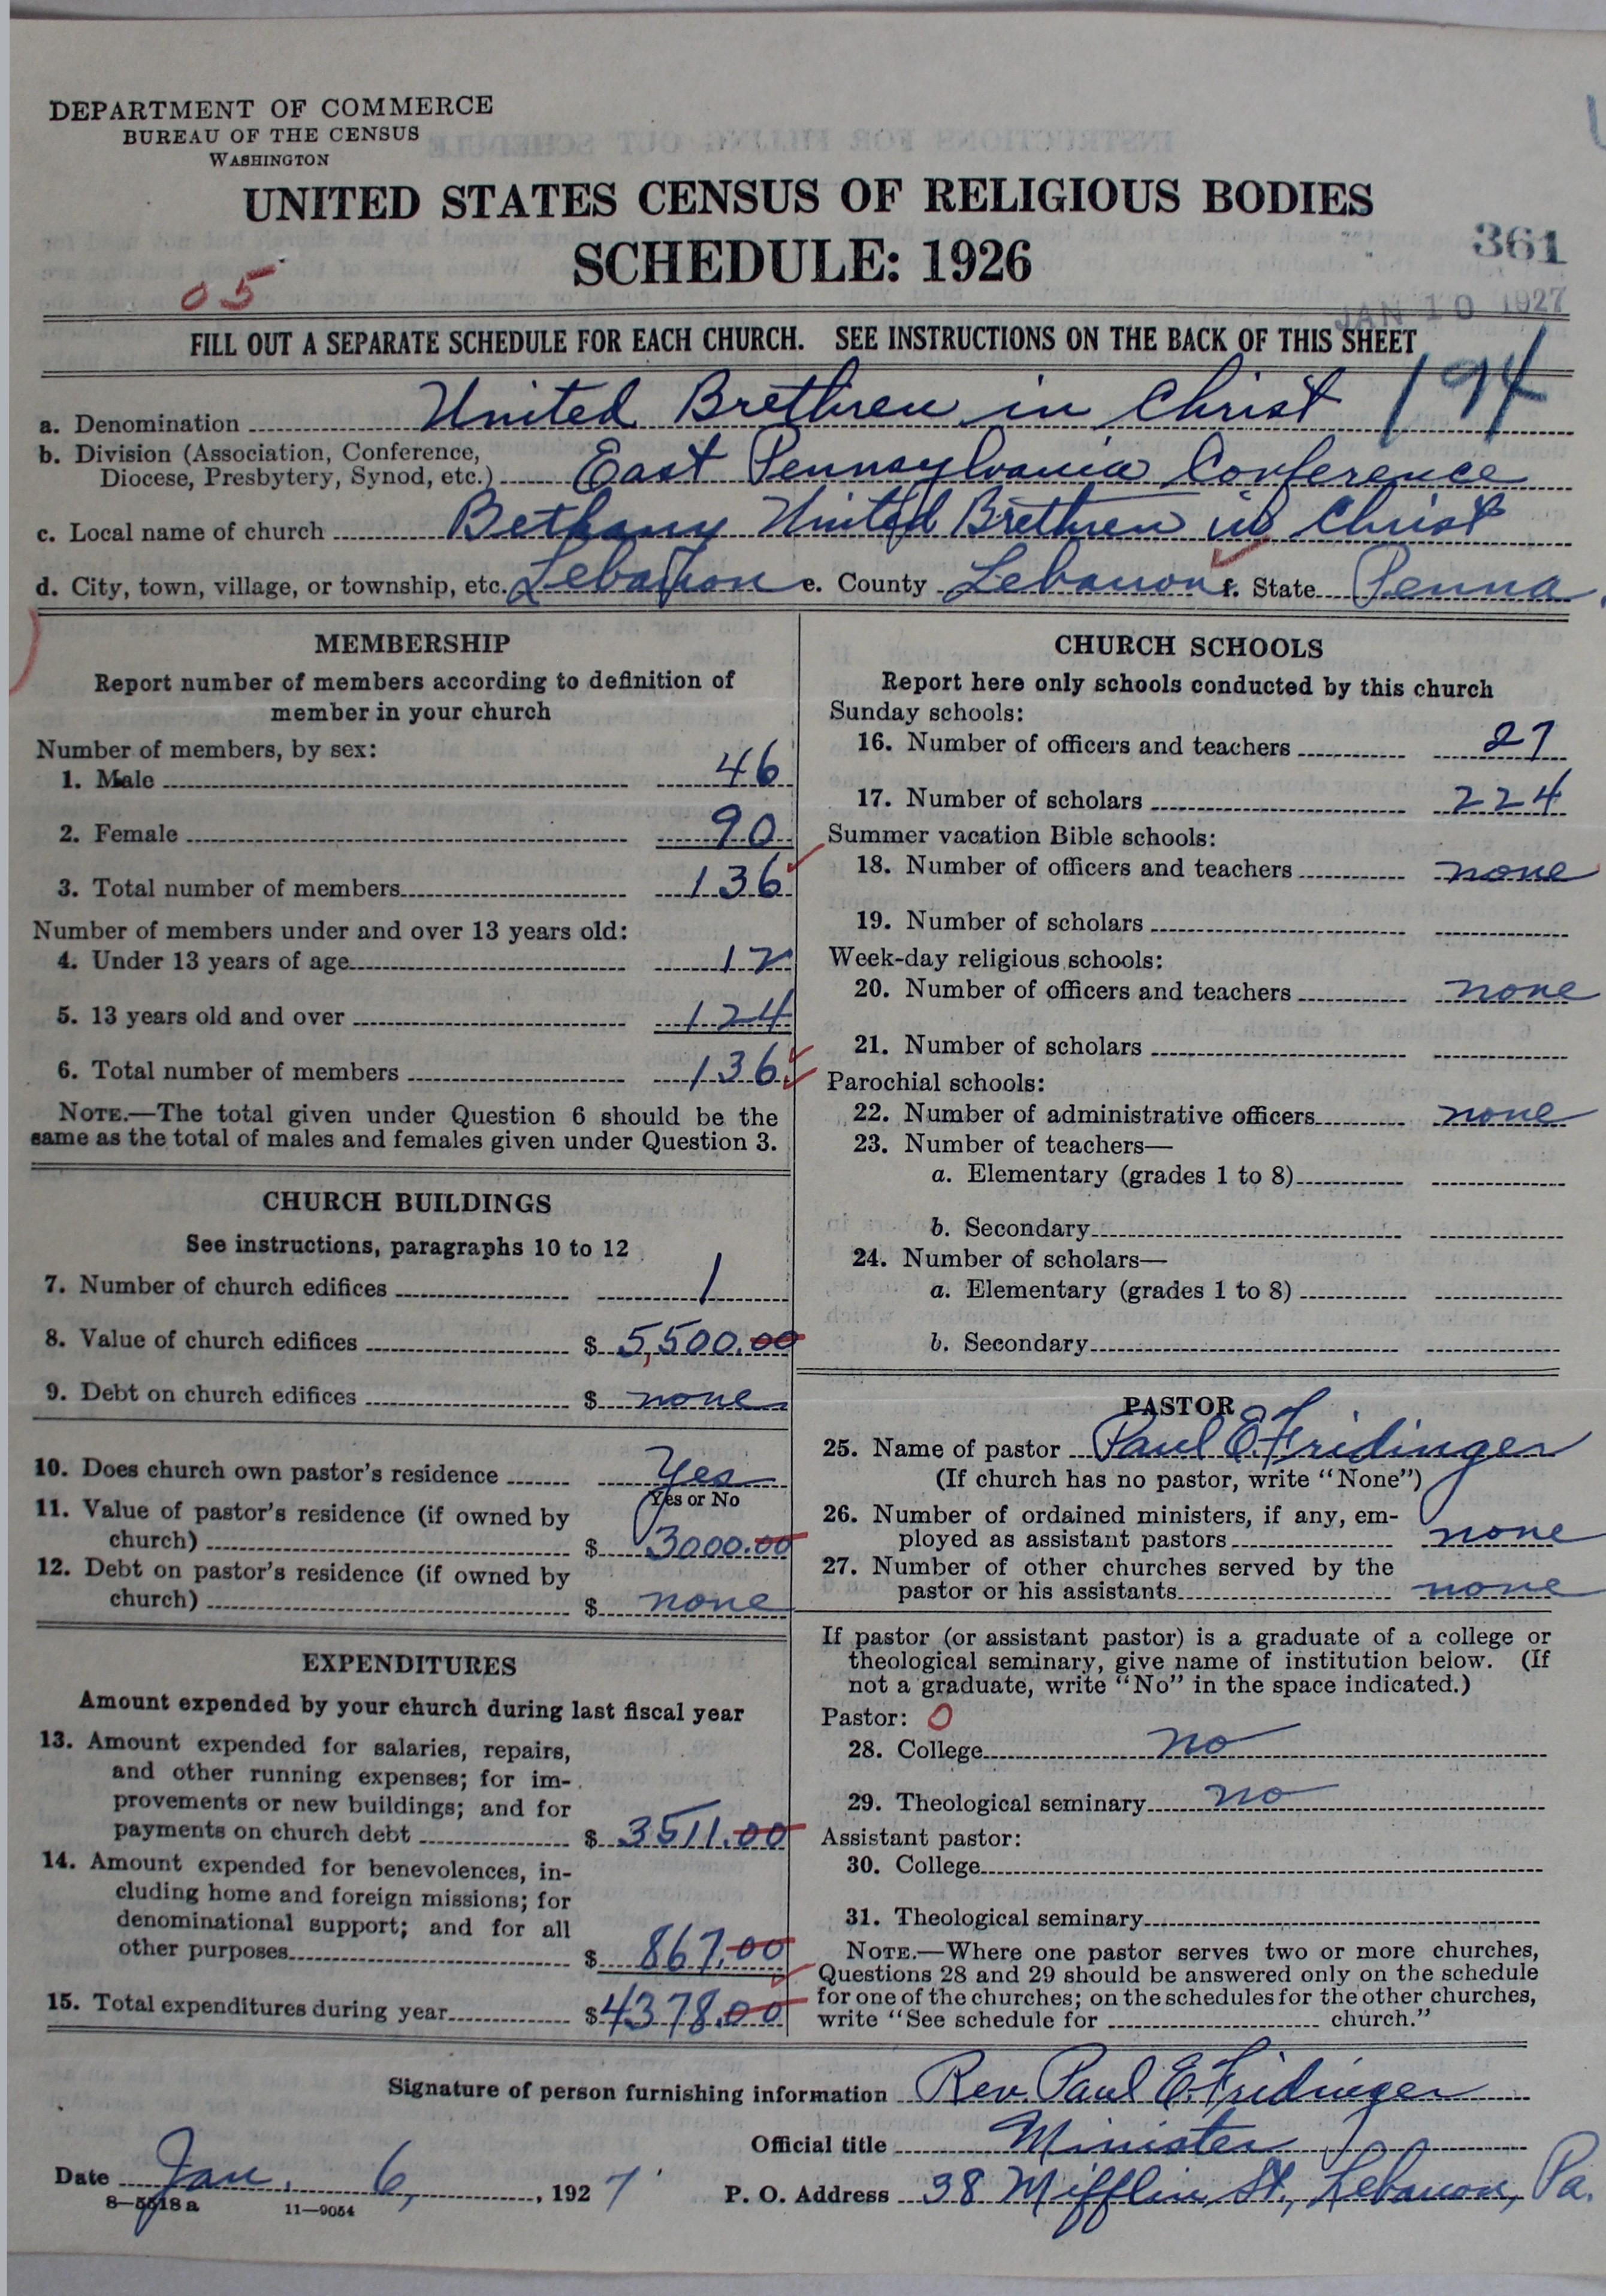 DEPARTMENT OF COMMERCE
BUREAU OF THE CENSUS
WASHINGTON
UNITED STATES CENSUS OF RELIGIOUS BODIES
SCHEDULE: 1926
361
05
JAN 10 1927
FILL OUT A SEPARATE SCHEDULE FOR EACH CHURCH. SEE INSTRUCTIONS ON THE BACK OF THIS SHEET
194
a. Denomination United Brethren in Christ
b. Division (Association, Conference,
Diocese, Presbytery, Synod, etc.) East Pennsylvania Conference
c. Local name of church Bethany United Brethren in Christ
d. City, town, village, or township, etc. Lebanon e. County Lebanon f. State Penna.
MEMBERSHIP
Report number of members according to definition of
member in your church
Number of members, by sex:
1. Male 46
2. Female 90
3. Total number of members 136
Number of members under and over 13 years old:
4. Under 13 years of age 12
5. 13 years old and over 124
6. Total number of members 136
NOTE.—The total given under Question 6 should be the
same as the total of males and females given under Question 3.
CHURCH BUILDINGS
See instructions, paragraphs 10 to 12
7. Number of church edifices 1
8. Value of church edifices $ 5,500.00
9. Debt on church edifices $ none
10. Does church own pastor's residence Yes
Yes or No
11. Value of pastor's residence (if owned by
church) $ 3000.00
12. Debt on pastor's residence (if owned by
church) $ none
EXPENDITURES
Amount expended by your church during last fiscal year
13. Amount expended for salaries, repairs,
and other running expenses; for im-
provements or new buildings; and for
payments on church debt $ 3511.00
14. Amount expended for benevolences, in-
cluding home and foreign missions; for
denominational support; and for all
other purposes $ 867.00
15. Total expenditures during year $ 4378.00
CHURCH SCHOOLS
Report here only schools conducted by this church
Sunday schools:
16. Number of officers and teachers 27
17. Number of scholars 224
Summer vacation Bible schools:
18. Number of officers and teachers none
19. Number of scholars
Week-day religious schools:
20. Number of officers and teachers none
21. Number of scholars
Parochial schools:
22. Number of administrative officers none
23. Number of teachers—
a. Elementary (grades 1 to 8)
b. Secondary
24. Number of scholars—
a. Elementary (grades 1 to 8)
b. Secondary
PASTOR
25. Name of pastor Paul E. Fridinger
(If church has no pastor, write "None")
26. Number of ordained ministers, if any, em-
ployed as assistant pastors none
27. Number of other churches served by the
pastor or his assistants none
If pastor (or assistant pastor) is a graduate of a college or
theological seminary, give name of institution below. (If
not a graduate, write "No" in the space indicated.)
Pastor: 0
28. College no
29. Theological seminary no
Assistant pastor:
30. College
31. Theological seminary
NOTE.—Where one pastor serves two or more churches,
Questions 28 and 29 should be answered only on the schedule
for one of the churches; on the schedules for the other churches,
write "See schedule for church."
Signature of person furnishing information Rev. Paul E. Fridinger
Official title Minister
Date Jan. 6, 1927
P. O. Address 38 Mifflin St., Lebanon, Pa.
8—5518a 11—9054